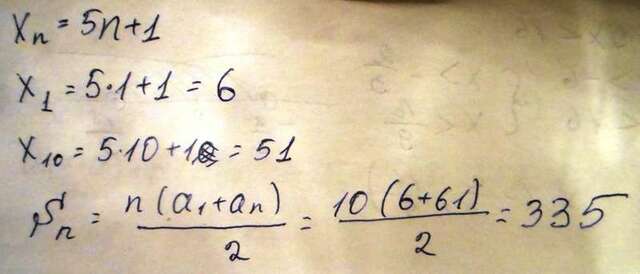 Xn = 5n+1
X1 = 5·1+1 = 6
X10 = 5·10+1 = 51
Sn = n(a1+an)/2 = 10(6+61)/2 = 335